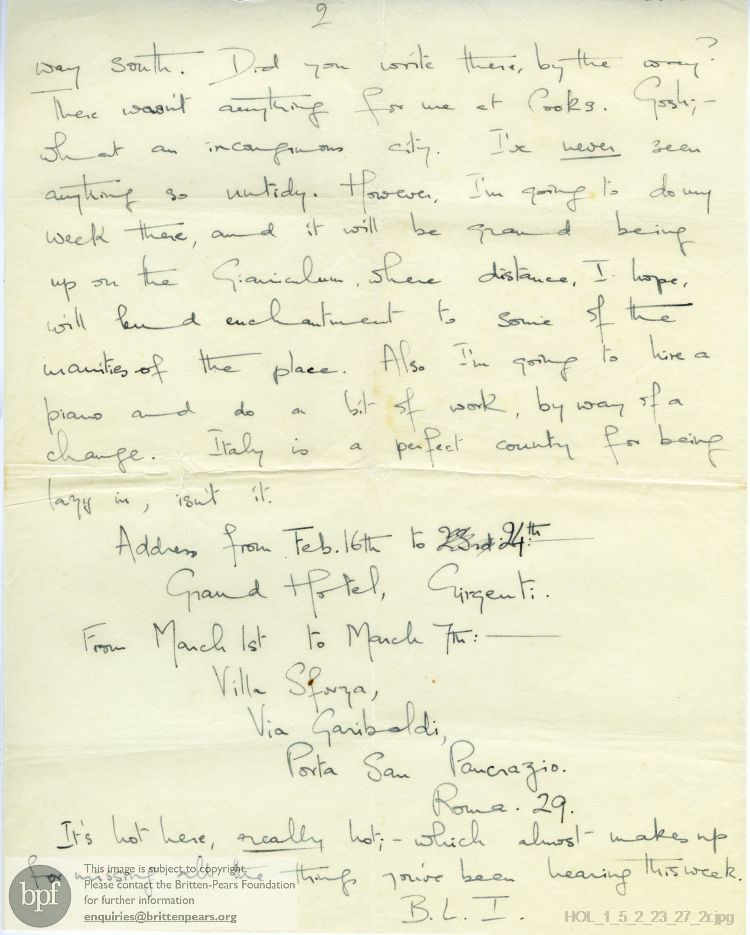 2
way south. Did you write there, by the way?
There wasn't anything for me at Cooks. Gosh;–
what an incongruous city. I've never seen
anything so untidy. However, I'm going to do my
week there, and it will be grand being
up on the Gianiculum, where distance, I hope,
will lend enchantment to some of the
inanities of the place. Also I'm going to hire a
piano and do a bit of work, by way of a
change. Italy is a perfect country for being
lazy in, isn't it.
Address from Feb. 16th to 23rd 24th:—
Grand Hotel, Girgenti.
From March 1st to March 7th:—
Villa Sforza,
Via Garibaldi,
Porta San Pancrazio.
Roma. 29.
It's hot here, really hot;– which almost makes up
for missing all the things you've been hearing this week.
B. L. I.
bpf
This image is subject to copyright.
Please contact the Britten-Pears Foundation
for further information
enquiries@brittenpears.org
HOL_1_5_2_23_27_2r.jpg